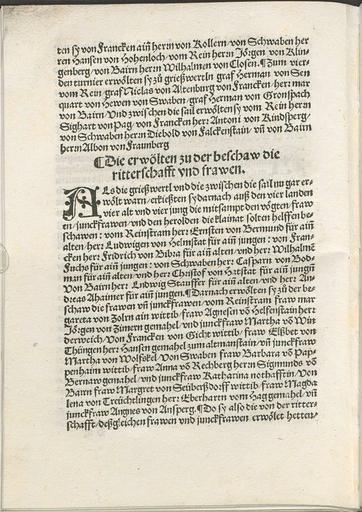 ten sy von Francken ain̄ herrn von Kollern/ von Schwaben her
ren Hansen von Hohenloch/ vom Rein herrn Jörgen von Klin-
genberg/ von Bairn herrn Wilhalmen von Closen. ¶ Zum vier-
den turnier erwölten sy zů grießwertln graf Herman von Sen
vom Rein graf Niclas von Altenburg von Francken/ herr mar
quart von Hewen von Swaben/ graf Herman von Gronspach
von Bairn Vnd zwischen die sail erwölten sy vom Rein herrn
Sighart von pag/ von Francken herr Antoni von Kindsperg/
von Schwaben herrn Diebold von Falckenstain/ vn̄ von Bairn
herrn Albon von Fraunberg
¶ Die erwölten zu der beschaw die
ritterschafft vnd frawen.
Als die grießwertl vnd die zwischen die sail nun gar er-
wölt warn/ erkießten sy darnach auß den vier landen
vier alt vnd vier jung die mitsampt den vögten/ fraw
en/ junckfrawen vnd den herolden die klainat solten helffen be-
schawen: vom Reinstram herr: Ernsten von Bermund für ain̄
alten/ herr Ludwigen von Helmstat für ain̄ jungen: von Fran-
cken herr Fridrich von Bibra für ain̄ alten/ vnd herr Wilhalmē
Fuchs für ain̄ jungen: von Schwaben herr Casparn von Bod-
man für ain̄ alten/ vnd herr Christof von Hatstat für ain̄ jungn̄
Von Bairn herr Ludwig Stauffer für ain̄ alten/ vnd herr An-
dreas Ahaimer für ain̄ jungen. ¶ Darnach erwölten sy zů der be-
schaw die frawen vn̄ junckfrawen/ vom Reinstram fraw mar
gareta von Zolrn ain wittib/ fraw Agnesen vō Helfenstain herr
Jörgen von Zimern gemahel/ vnd junckfraw Martha vō Win
derweich/ Von Francken von Gicht wittib/ fraw Elßbet von
Thüngen herr Hansen gemahel zum altmanstain/ vn̄ junckfraw
Martha von Wolfskel Von Swaben fraw Barbara vō Pap
penhaim wittib/ fraw Anna vō Rechberg herrn Sigmunds vō
Bernaw gemahel/ vnd junckfraw Katharina nothafftin/ Von
Bairn fraw Margret von Seüberßdorff wittib/ fraw Magda
lena von Treüchtlingen herr: Eberharten vom Hag gemahel/ vn̄
junckfraw Angnes von Ansperg. ¶ Do sy also die von der ritter-
schafft/ deßgleichen frawen vnd junckfrawen erwölet hetten/